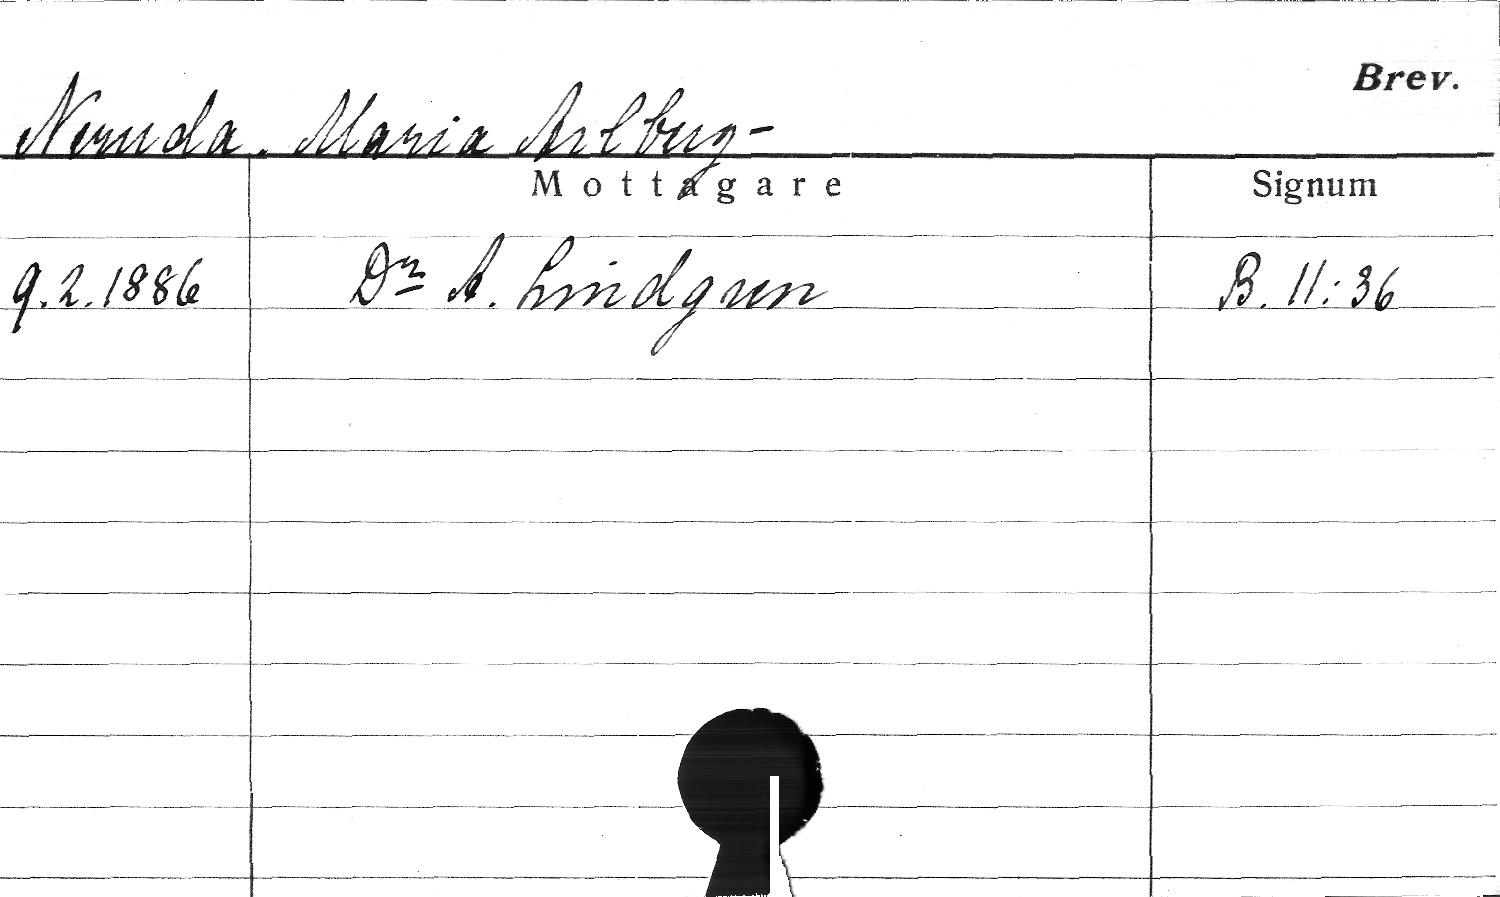 Brev.
Neruda. Maria Arlberg-
Mottagare Signum
9.2.1886 Dr A. Lindgren B. 11:36